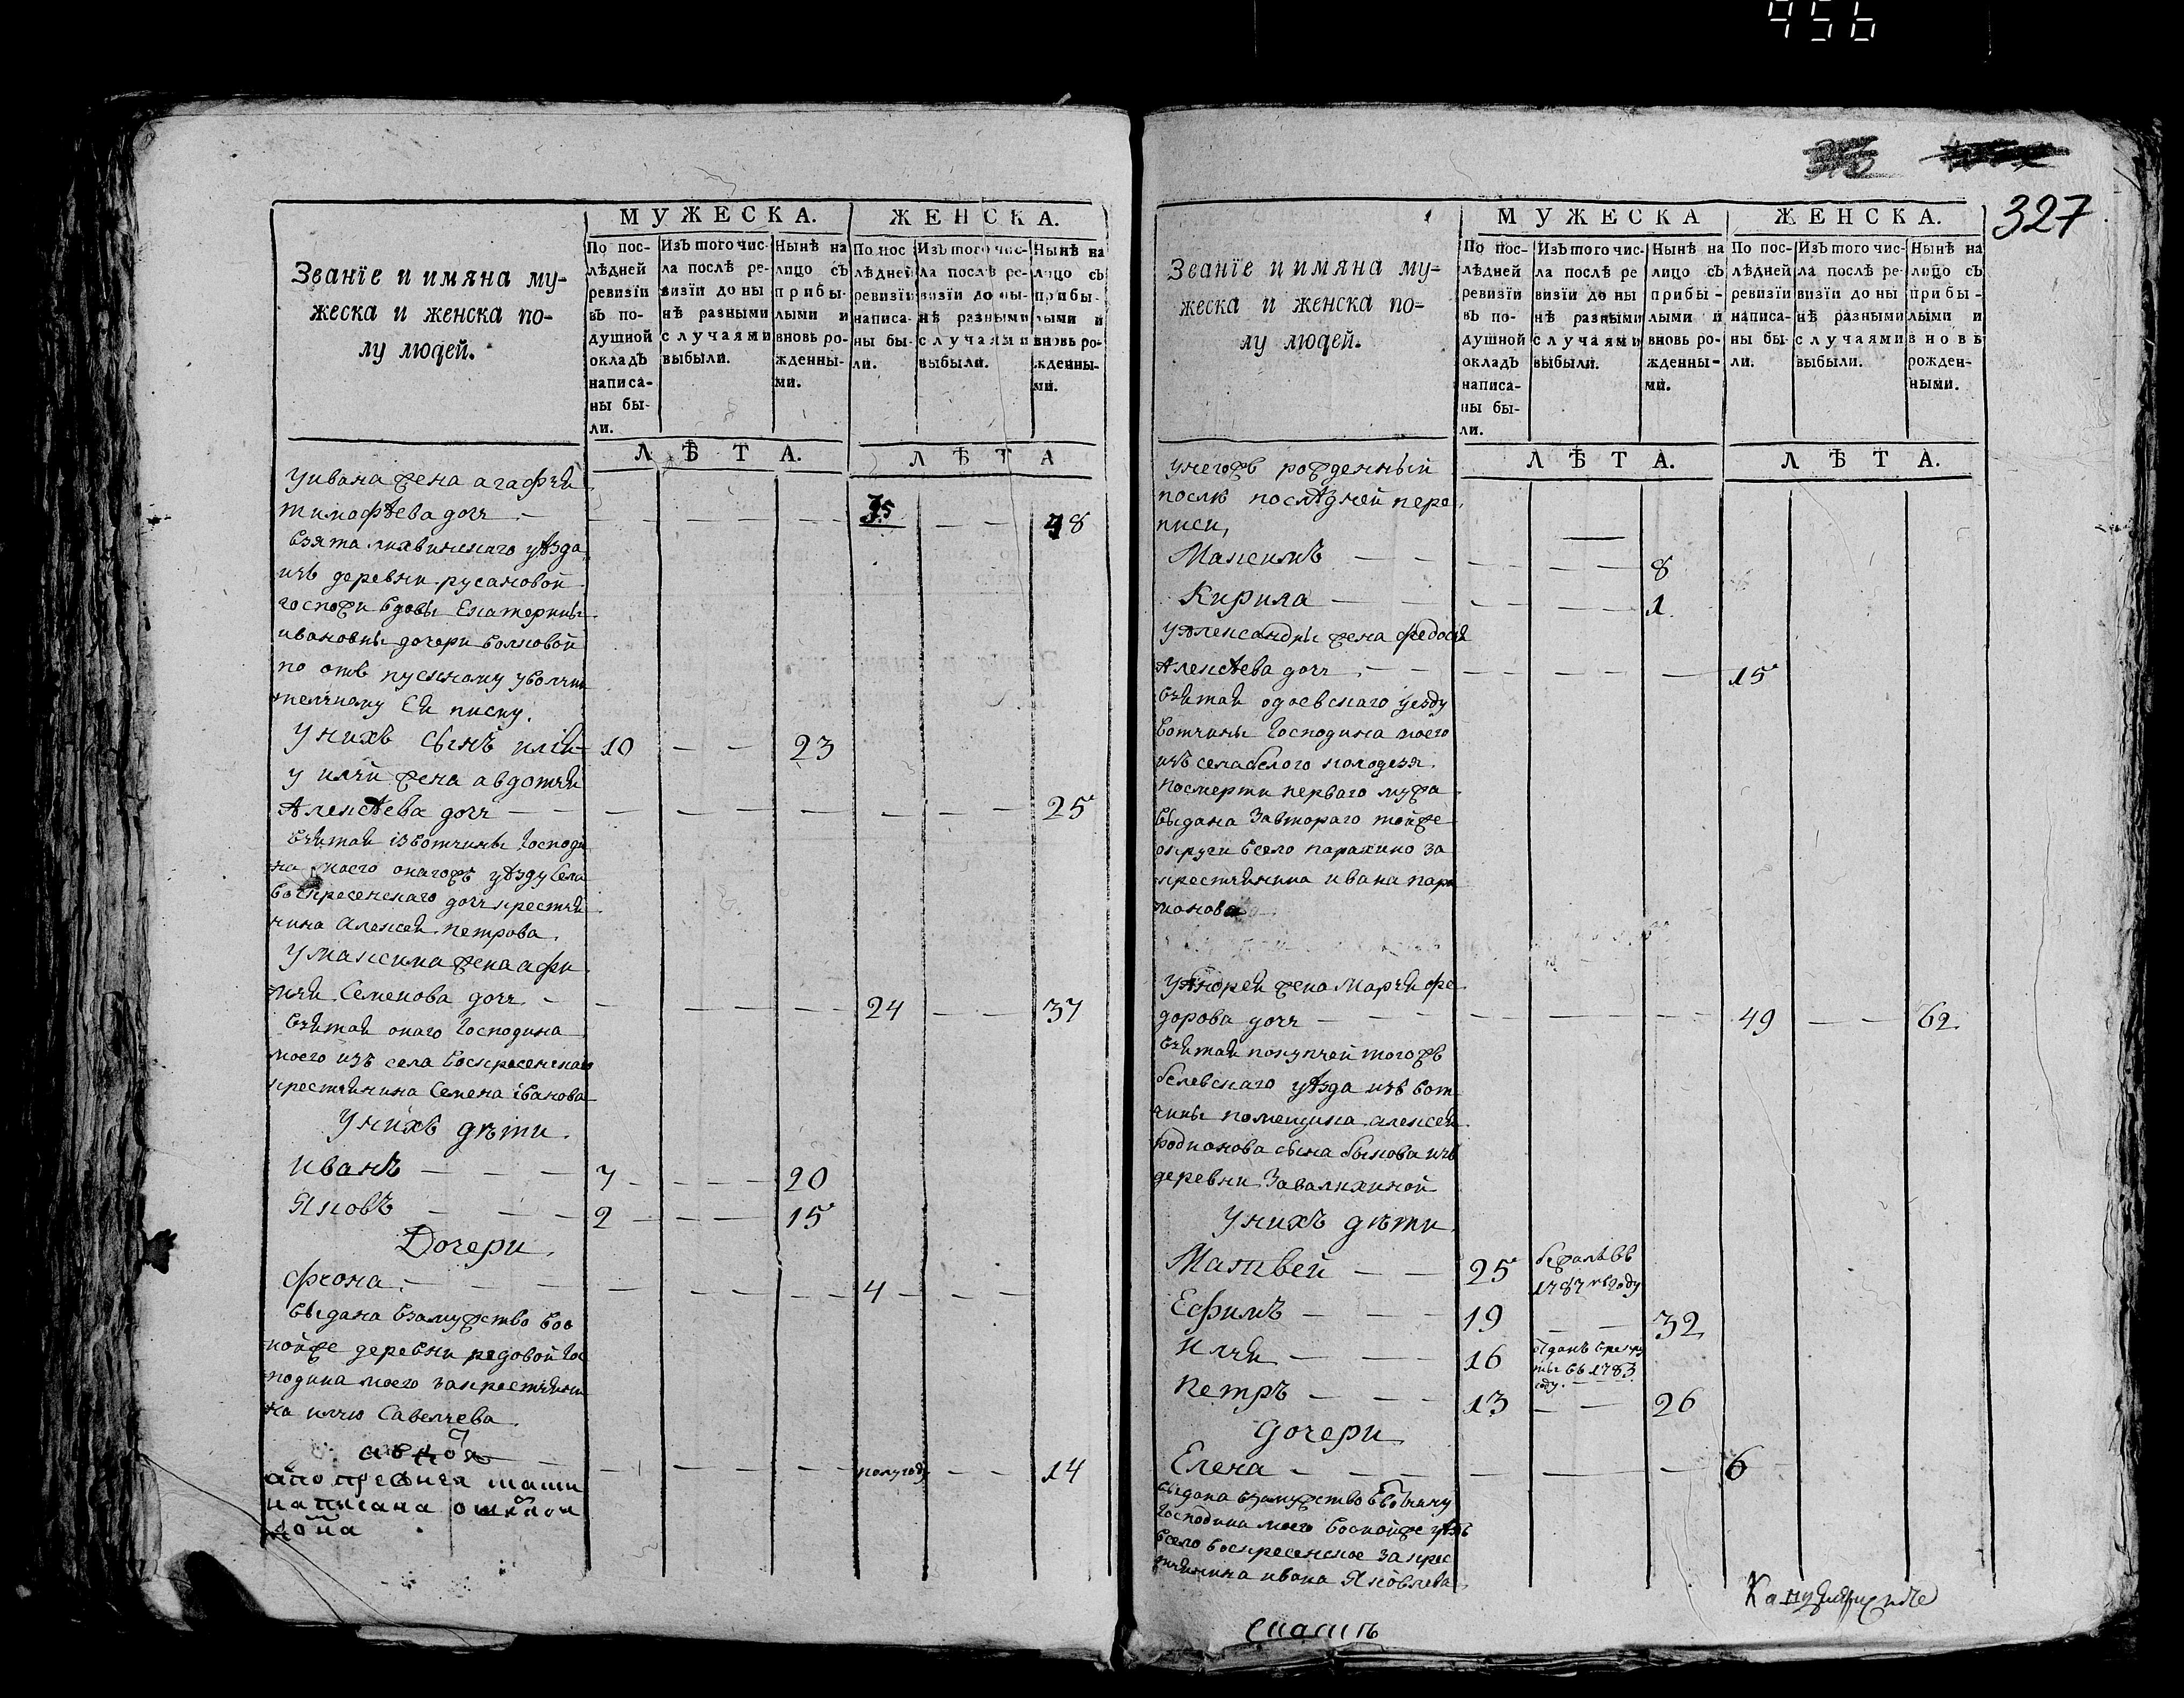 456
327
МУЖЕСКА. ЖЕНСКА.
Званїе и имяна му-
жеска и женска по-
лу людей.
По пос-
лѣдней
ревизїи
въ по-
душной
окладъ
написа-
ны бы-
ли.
Изъ того чис-
ла послѣ ре-
визїи до ны
нѣ разными
случаями
выбыли.
Нынѣ на
лицо съ
прибы-
лыми и
вновь ро-
жденны-
ми.
По пос
лѣдней
ревизїи
написа-
ны бы-
ли.
Изъ того чис-
ла послѣ ре-
визїи до ны-
нѣ разными
случаями
выбыли.
Нынѣ на
лицо съ
прибы-
лыми и
вновь ро-
жденны-
ми.
ЛѢТА. ЛѢТА
у ивана жена агафья
тимофѣева дочь 35 48
взята лихвинскаго уѣзда
изъ деревни русановой
госпожи вдовы Екатерины
ивановны дочери волковой
по отъ пускному
телному Ея писму.
У нихъ сынъ илья 10 23
у ильи жена авдотья
Алексѣева дочь 25
взятая iзвотчины господи
на моего онагожъ уѣзду села
воскресенскаго дочь крестья
нина Алексея петрова
У максима жена афи
мья Семенова дочь 24 37
взятая онаго господина
моего изъ села воскресенскаго
крестьянина Семена iванова
У нихъ дѣти
иванъ 7 20
Яковъ 2 15
Дочери
фиона 4
выдана взамужство воо
нойже деревни редовой гос
подина моего закрестьяни
на илью Савельева
полугоду 14
написана
МУЖЕСКА ЖЕНСКА.
Званїе и имяна му-
жеска и женска по-
лу людей.
По пос-
лѣдней
ревизїи
въ по-
душной
окладъ
написа-
ны бы-
ли.
Изъ того чис-
ла послѣ ре
визїи до ны
нѣ разными
случаями
выбыли.
Нынѣ на
лицо съ
прибы-
лыми и
вновь ро-
жденны-
ми.
По пос-
лѣдней
ревизїи
написа-
ны бы-
ли.
Изъ того чис-
ла послѣ ре-
визїи до ны
нѣ разными
случаями
выбыли.
Нынѣ на
лицо съ
прибы-
лыми и
вновь
рожден-
ными.
ЛѢТА. ЛѢТА.
у негожъ рожденный
послѣ послѣдней пере
писи,
Максимъ 8
Кирила 1
у Александры жена федосья
Алексѣева дочь 15
взятая одоевскаго уезду
вотчины господина моего
изъ села белого колодезя
посмерти перваго мужа
выдана завтораго тойже
округи всело парахино за
крестьянина ивана пара
монова
У Андрея жена Марья фе
дорова дочь 49 62
взятая покупкей тогожъ
белевскаго уѣзда изъ вот
чины помещика алексея
Родионова сына быкова изъ
деревни Завалихиной
У нихъ дѣти
Матвей 25 бежалъ въ
1787мъ году
Ефимъ 19 32
Илья 16 отданъ врекру
ты въ 1783
году.
Петръ 13 26
дочери
Елена 6
выдана взамужство ввотчину
господина моего воонойже уѣздъ
всело воскресенское за крес
тьянина ивана Яковлева